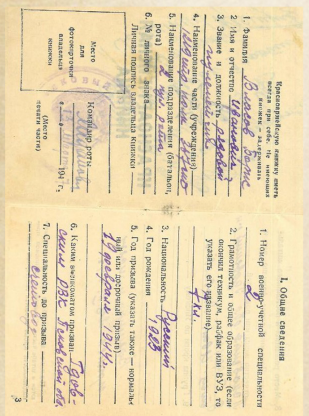 Красноармейскую книжку иметь
всегда при себе. Не имеющих
книжек — задерживать
1. Фамилия Власов Борис
2. Имя и отчество Иванович
3. Звание и должность рядовой
4. Наименование части (учреждения)
1219
5. Наименование подразделения (батальон,
рота) 2 рота
6. № личного знака
Личная подпись владельца книжки
Место
фотокарточки
владельца
книжки
Командир роты
194 г.
(Место
печати части)
I. Общие сведения
1. Номер военно-учетной специальности
2
2. Грамотность и общее образование (если
окончил техникум, рабфак или ВУЗ, то
указать его название)
7 кл.
3. Национальность Русский
4. Год рождения 1923
5. Год призыва (указать также — нормаль-
ный или досрочный призыв)
19 февраля 1944 г.
6. Каким военкоматом призван Гдов-
ским РВК Псковской обл.
7. Специальность до призыва
3